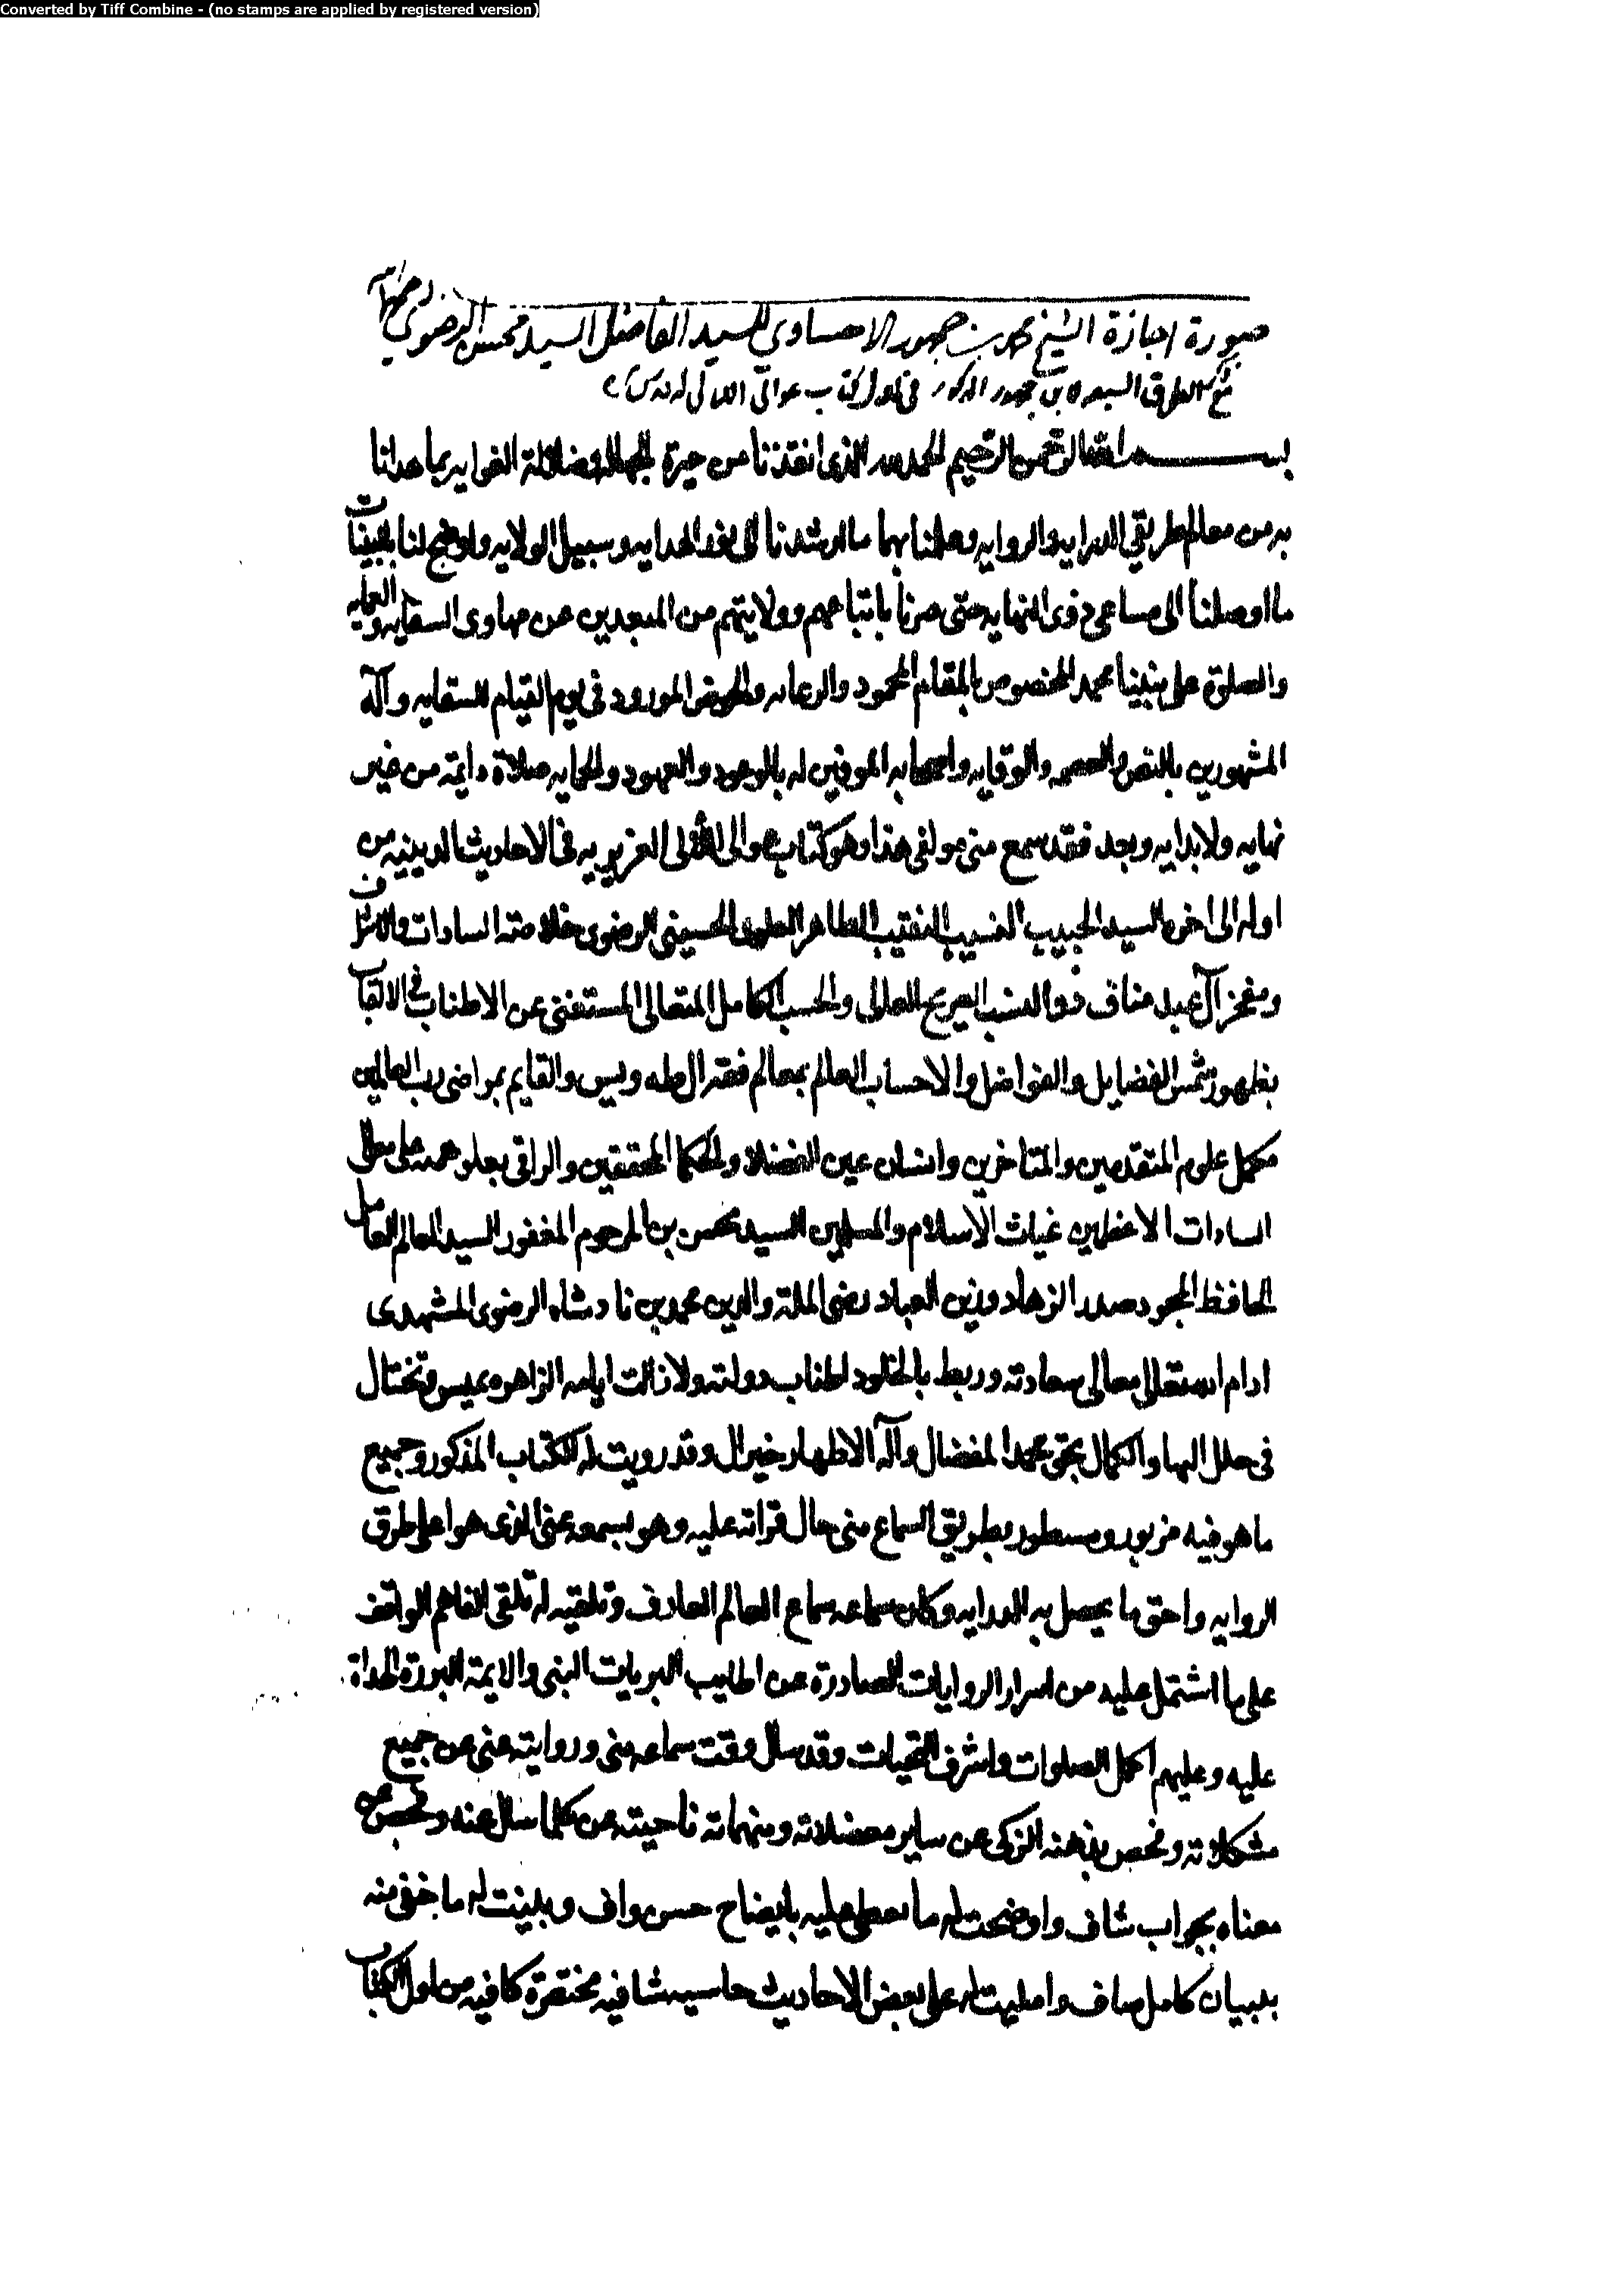 Converted by Tiff Combine - (no stamps are applied by registered version)
صورة اجازة الشيخ محمد بن جمهور الاحساوي للسيد الفاضل السيد محسن الرضوي رحمهما الله
الطرق السبعه لابن جمهور المذكور في اول كتاب عوالي اللالي
بسم الله الرحمن الرحيم الحمد لله الذى انقذنا من حيرة الجهاله وضلالة الغوايه بما هدانا
به من معالم طريقي الدرايه والروايه وعلمنا بهما ما ارشدنا الى نفد الهدايه وسبيل الولايه واوضح لنا بالبينات
ما اوصلنا الى مساعى ذوى النهايه حتى صرنا باتباعهم وولايتهم من المبعدين عن مهاوى السفايه والعمايه
والصلوة على نبينا محمد المخصوص بالمقام المحمود والرعايه والحوض المورود في يوم القيام للسقايه وآله
المشهورين بالنص والعصمه والوقايه واصحابه الموفين له بالوعود والعهود والحمايه صلاة دايمة من غير
نهايه ولا بدايه وبعد فقد سمع منى مولفى هذا وهو كتاب عوالى اللألى العزيزيه فى الاحاديث الدينيه من
اوله الى اخره السيد الحبيب النسيب النقيب الطاهر العلوى الحسينى الرضوى خلاصة السادات والاشراف
ومفخر آل عبد مناف ذو النسب الصريح العالى والحسب الكامل المتعالى المستغنى عن الاطناب فى الالقاب
بظهور شمس الفضايل والفواضل والاحساب العالم بمعالم فقه ال طه ويس والقايم بمراضى رب العالمين
مكمل علوم المتقدمين والمتاخرين وانسان عين الفضلا والحكما المحققين والراقى بعلو همته على معالى
السادات الاعظمين غياث الاسلام والمسلمين السيد محسن بن المرحوم المغفور السيد العالم العامل
الحافظ المجود صدر الزهاد وزين العباد رضى الملة والدين محمد بن نادشاه الرضوى المشهدى
ادام الله تعالى معالى سعادته وربط بالخلود اطناب دولته ولا زالت ايامه الزاهره تميس وتختال
فى حلل البها والكمال بحق محمد المفضال وآله الاطهار خير ال وقد رويت له الكتاب المذكور وجميع
ما هو فيه مزبور ومسطور بطريق السماع منى حال قراته عليه وهو يسمعه عنى الذى هو اعلى طرق
الروايه واحق ما يحصل به الدرايه وكان سماعه سماع العالم العارف وتلقيه له تلقى الفاهم الواقف
على ما اشتمل عليه من اسرار الروايات الصادرة عن اطايب البريات النبى والايمة البررة الهداة
عليه وعليهم اكمل الصلوات واشرف التحيات وقد سال وقت سماعه منى وروايته عنى عن جميع
مشكلاته وفحص بذهنه الزكى عن ساير معضلاته ومبهماته فاجبته عن كلما سال عنه وفحص عن
معناه بجواب شاف واوضحت له ما يعطى عليه بايضاح حسن واف وبينت له ما خفى منه
ببيان كامل صاف وامليت له على بعض الاحاديث حاسيه شافيه مختصرة كافيه من اول الكتاب